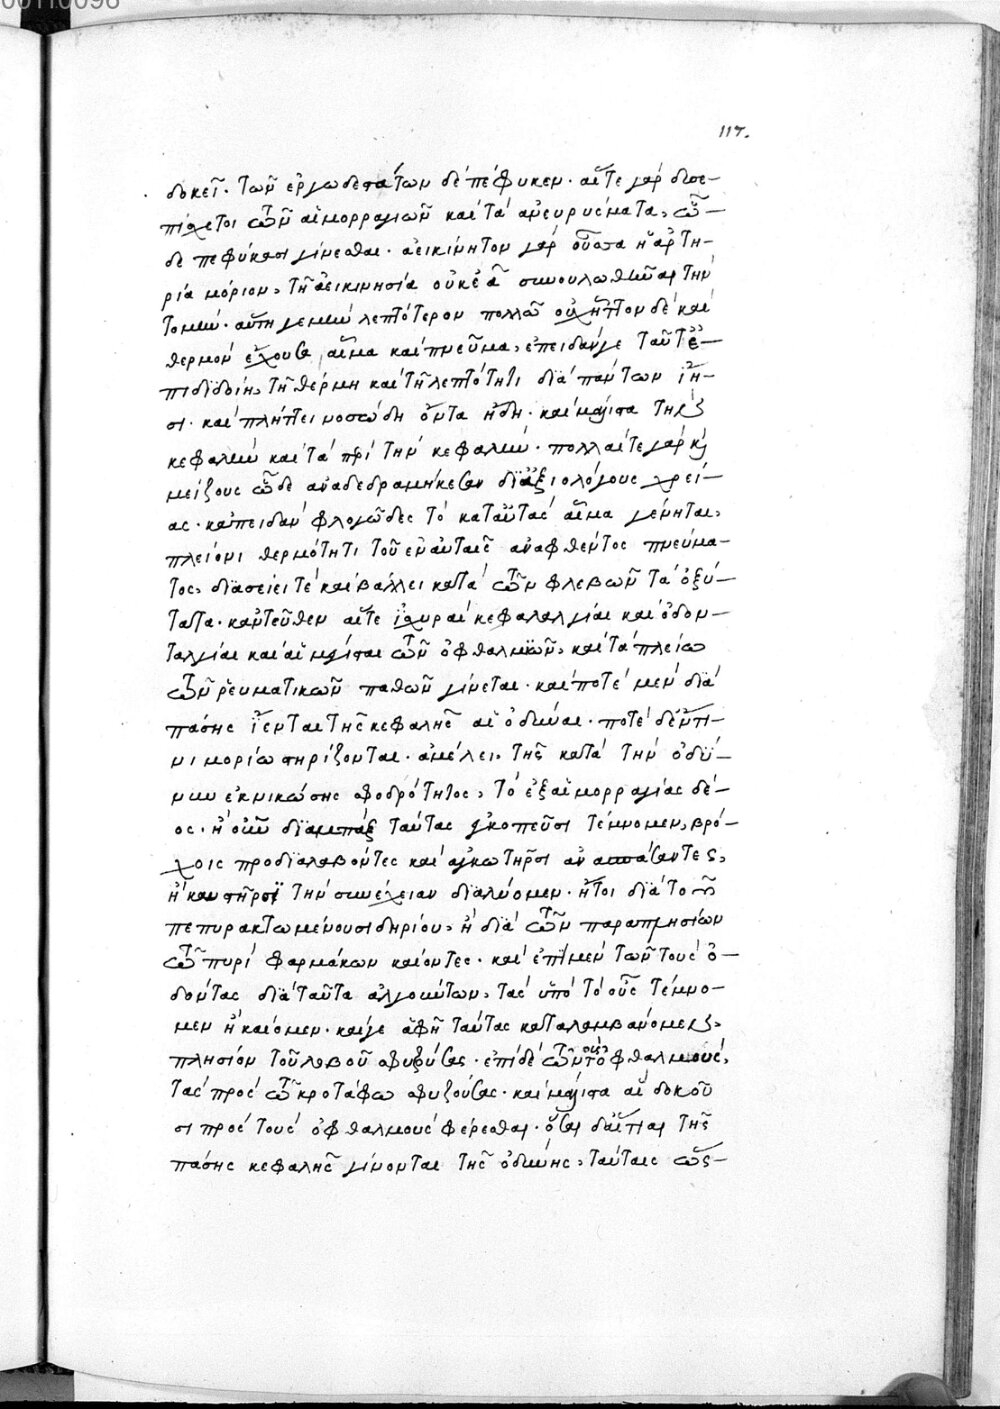 117.
δοκεῖ. τῶν ἐργωδεστάτων δὲ πέφυκεν. αἵτε γὰρ δυσε-
πίσχετοι τῶν αἱμορραγιῶν καὶ τὰ ἀνευρύσματα, ὧ-
δε πεφύκασι γίνεσθαι. ἀεικίνητον γὰρ οὖσα ἡ ἀρτη-
ρία μόριον, τῇ ἀεικινησία οὐκ ἐᾶ συνουλωθῆναι τὴν
τομήν. αὕτη γε μὴν λεπτότερον πολλῶ οὐχ ἧττον δὲ καὶ
θερμὸν ἔχουσα αἷμα καὶ πνεῦμα, ἐπειδάν γε ταῦτ ἐ-
πιδιδοίη, τῆ θέρμη καὶ τῆ λεπτότητι διὰ πάντων ἵη-
σι. καὶ πλήττει νοσώδη ὄντα ἤδη. καὶ μάλιστα τὴν
κεφαλὴν καὶ τὰ περὶ τὴν κεφαλήν. πολλαί τε γὰρ καὶ
μείζους ὧδε ἀναδεδραμήκεσαν δι ἀξιολόγους χρεί-
ας. κἀπειδὰν φλογῶδες τὸ κατ αὐτὰς αἷμα γένηται,
πλείονι θερμότητι τοῦ ἐν αὐταῖς ἀναφθέντος πνεύμα-
τος, διασείει τὲ καὶ βάλλει κατὰ τῶν φλεβῶν τὰ ὀξύ-
τατα. κἀντεῦθεν αἵτε ἰσχυραὶ κεφαλαλγίαι καὶ ὀδον-
ταλγίαι καὶ αἱ μάλισται τῶν ὀφθαλμιῶν, καὶ τὰ πλείω
τῶν ῥευματικῶν παθῶν γίνεται. καὶ ποτὲ μὲν διὰ
πάσης ἵενται τῆς κεφαλῆς αἱ ὀδύναι. ποτὲ δ ἔν τι-
νι μορίω στηρίζονται. ἀμέλει, τῆς κατὰ τὴν ὀδύ-
νην ἐκνικώσης σφοδρότητος, τὸ ἐξ αἱμορραγίας δέ-
ος. ἢ οὖν διαμπὰξ ταύτας σκοπεῦσι τέμνομεν, βρό-
χοις προδιαλαβόντες καὶ ἀγκωτῆρσι ἀνασπάσαντες,
ἢ καυτῆρσι τὴν συνέχειαν διαλύομεν. ἤτοι διὰ τοῦ
πεπυρακτωμένου σιδηρίου, ἢ διὰ τῶν παραπλησίων
τῶ πυρὶ φαρμάκων καίοντες. καὶ ἐπὶ μὲν τῶν τοὺς ὀ-
δόντας διὰ ταῦτα ἀλγούντων, τὰς ὑπὸ τὸ οὖς τέμνο-
μεν ἢ καίομεν. καί γε ἀφῆ ταύτας καταλαμβάνομεν,
πλησίον τοῦ λοβοῦ σφυζούσας. ἐπὶ δὲ τῶν τοὺς ὀφθαλμούς,
τὰς πρὸς τῶ κροτάφω σφυζούσας. καὶ μάλιστα αἳ δοκοῦ
σι πρὸς τοὺς ὀφθαλμοὺς φέρεσθαι. ὅσαι δ αἴτιαι τῆς
πάσης κεφαλῆς γίνονται τῆς ὀδύνης, ταύταις ὡς-